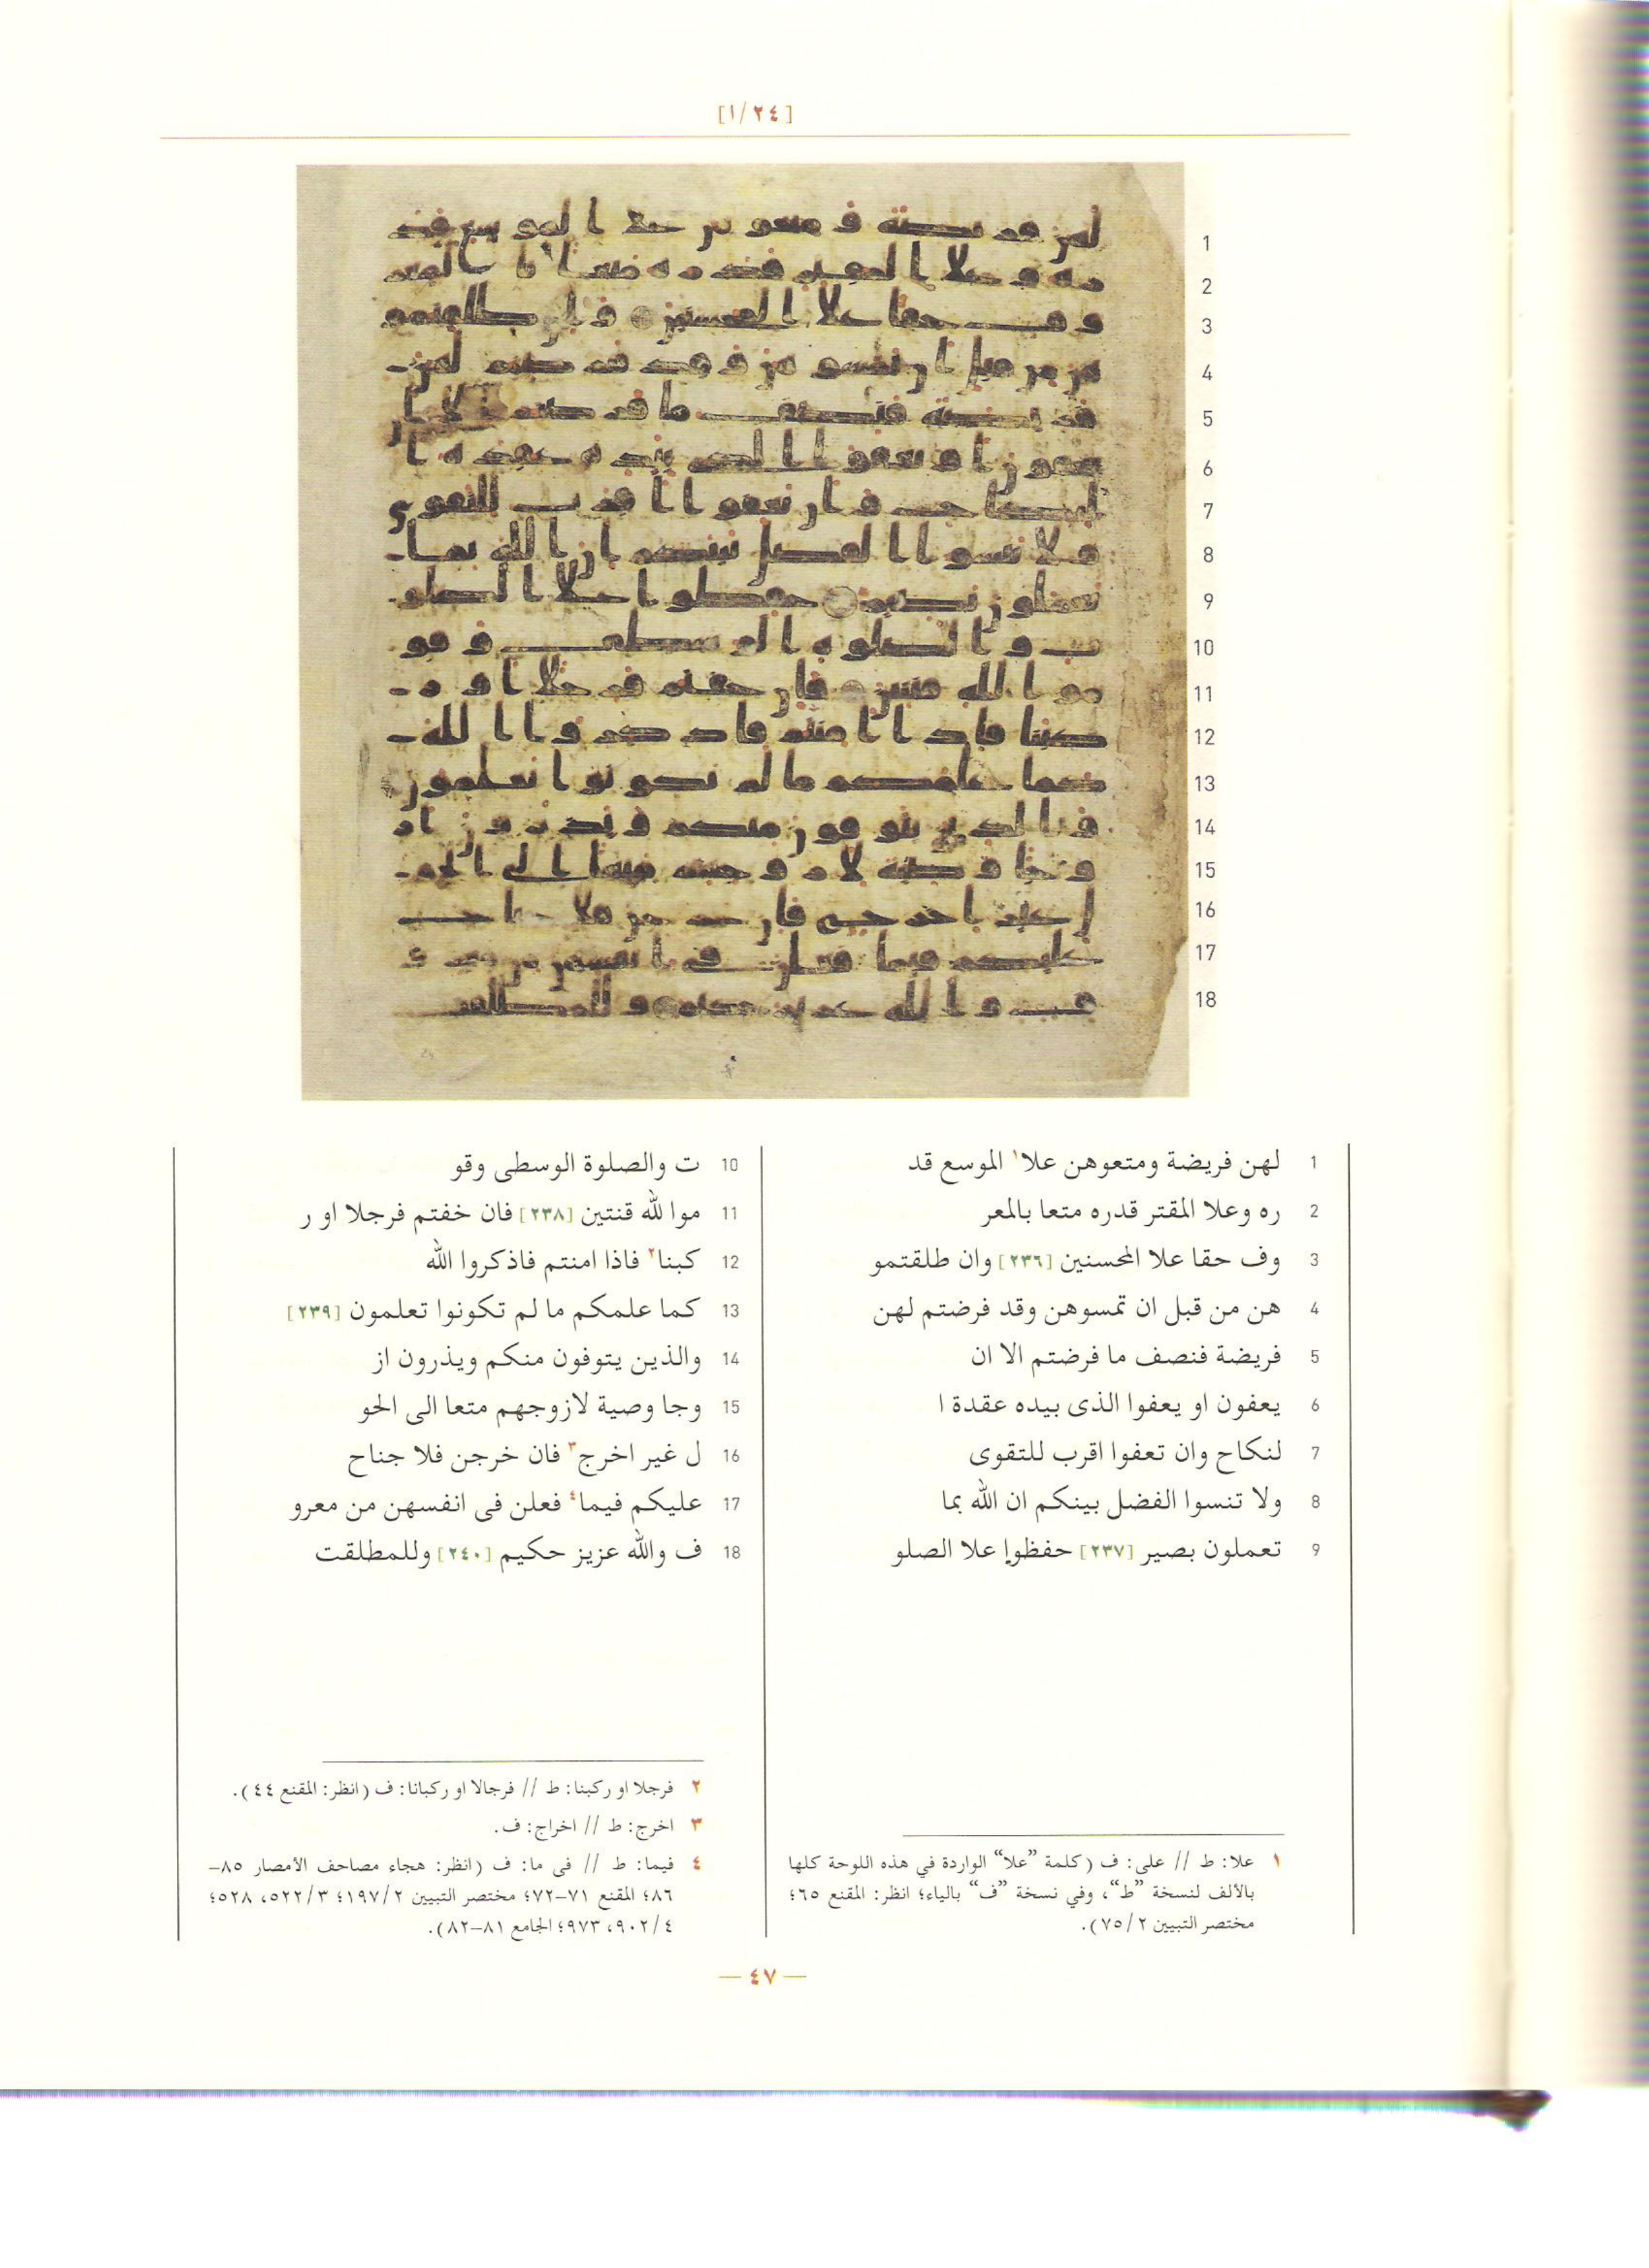 [١/٢٤]
1 لهن فريضة ومتعوهن علا١ الموسع قد
2 ره وعلا المقتر قدره متعا بالمعر
3 وف حقا علا المحسنين [٢٣٦] وان طلقتمو
4 هن من قبل ان تمسوهن وقد فرضتم لهن
5 فريضة فنصف ما فرضتم الا ان
6 يعفون او يعفوا الذى بيده عقدة ا
7 لنكاح وان تعفوا اقرب للتقوى
8 ولا تنسوا الفضل بينكم ان الله بما
9 تعملون بصير [٢٣٧] حفظوا علا الصلو
10 ت والصلوة الوسطى وقو
11 موا لله قنتين [٢٣٨] فان خفتم فرجلا او ر
12 كبنا٢ فاذا امنتم فاذكروا الله
13 كما علمكم ما لم تكونوا تعلمون [٢٣٩]
14 والذين يتوفون منكم ويذرون از
15 وجا وصية لازوجهم متعا الى الحو
16 ل غير اخرج٣ فان خرجن فلا جناح
17 عليكم فيما٤ فعلن فى انفسهن من معرو
18 ف والله عزيز حكيم [٢٤٠] وللمطلقت
١ علا: ط // على: ف (كلمة ”علا“ الواردة في هذه اللوحة كلها
بالألف لنسخة ”ط“، وفي نسخة ”ف“ بالياء؛ انظر: المقنع ٦٥؛
مختصر التبيين ٧٥/٢).
٢ فرجلا او ركبنا: ط // فرجالا او ركبانا: ف (انظر: المقنع ٤٤).
٣ اخرج: ط // اخراج: ف.
٤ فيما: ط // فى ما: ف (انظر: هجاء مصاحف الأمصار ٨٥–
٨٦؛ المقنع ٧١–٧٢؛ مختصر التبيين ١٩٧/٢؛ ٥٢٢/٣، ٥٢٨؛
٩٠٢/٤، ٩٧٣؛ الجامع ٨١–٨٢).
— ٤٧ —